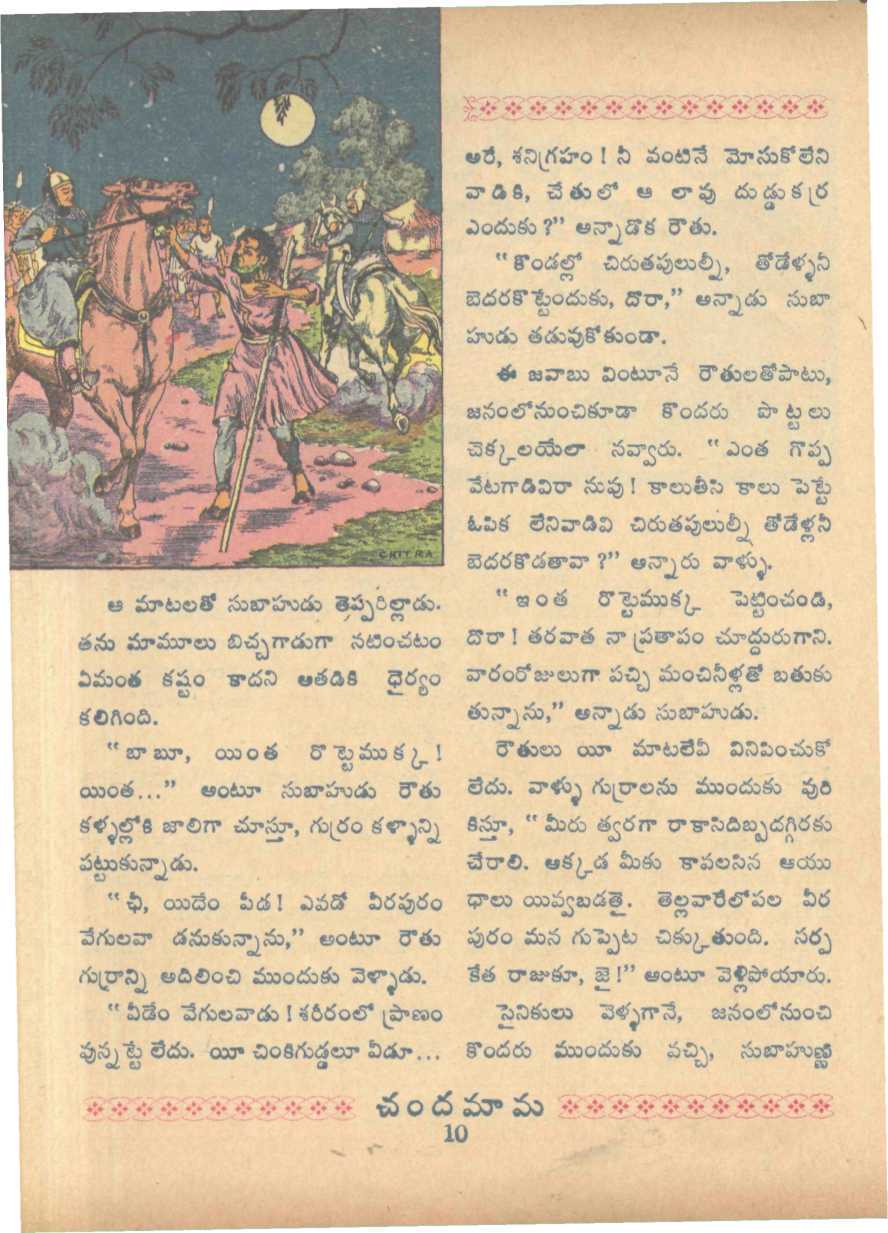 CHITRA
ఆ మాటలతో సుబాహుడు తెప్పరిల్లాడు.
తను మామూలు బిచ్చగాడుగా నటించటం
ఏమంత కష్టం కాదని ఆతడికి ధైర్యం
కలిగింది.
"బాబూ, యింత రొట్టెముక్క!
యింత..." అంటూ సుబాహుడు రౌతు
కళ్ళల్లోకి జాలిగా చూస్తూ, గుర్రం కళ్ళాన్ని
పట్టుకున్నాడు.
"ఛీ, యిదేం పీడ! ఎవడో వీరపురం
వేగులవా డనుకున్నాను," అంటూ రౌతు
గుర్రాన్ని అదిలించి ముందుకు వెళ్ళాడు.
"వీడేం వేగులవాడు! శరీరంలో ప్రాణం
వున్నట్టే లేదు. యీ చింకిగుడ్డలూ వీడూ...
అరే, శనిగ్రహం! నీ వంటినే మోసుకోలేని
వాడికి, చేతులో ఆ లావు దుడ్డుకర్ర
ఎందుకు?" అన్నాడొక రౌతు.
"కొండల్లో చిరుతపులుల్నీ, తోడేళ్ళనీ
బెదరకొట్టేందుకు, దొరా," అన్నాడు సుబా
హుడు తడువుకోకుండా.
ఈ జవాబు వింటూనే రౌతులతోపాటు,
జనంలోనుంచికూడా కొందరు పొట్టలు
చెక్కలయేలా నవ్వారు. "ఎంత గొప్ప
వేటగాడివిరా నువు! కాలుతీసి కాలు పెట్టే
ఓపిక లేనివాడివి చిరుతపులుల్నీ తోడేళ్లనీ
బెదరకొడతావా?" అన్నారు వాళ్ళు.
"ఇంత రొట్టెముక్క పెట్టించండి,
దొరా! తరవాత నా ప్రతాపం చూద్దురుగాని.
వారంరోజులుగా పచ్చి మంచినీళ్లతో బతుకు
తున్నాను," అన్నాడు సుబాహుడు.
రౌతులు యీ మాటలేవీ వినిపించుకో
లేదు. వాళ్ళు గుర్రాలను ముందుకు వురి
కిస్తూ, "మీరు త్వరగా రాకాసిదిబ్బదగ్గిరకు
చేరాలి. అక్కడ మీకు కావలసిన ఆయు
ధాలు యివ్వబడతై. తెల్లవారేలోపల వీర
పురం మన గుప్పెట చిక్కుతుంది. సర్ప
కేత రాజుకూ, జై!" అంటూ వెళ్లిపోయారు.
సైనికులు వెళ్ళగానే, జనంలోనుంచి
కొందరు ముందుకు వచ్చి, సుబాహుణ్ణి
చందమామ
10